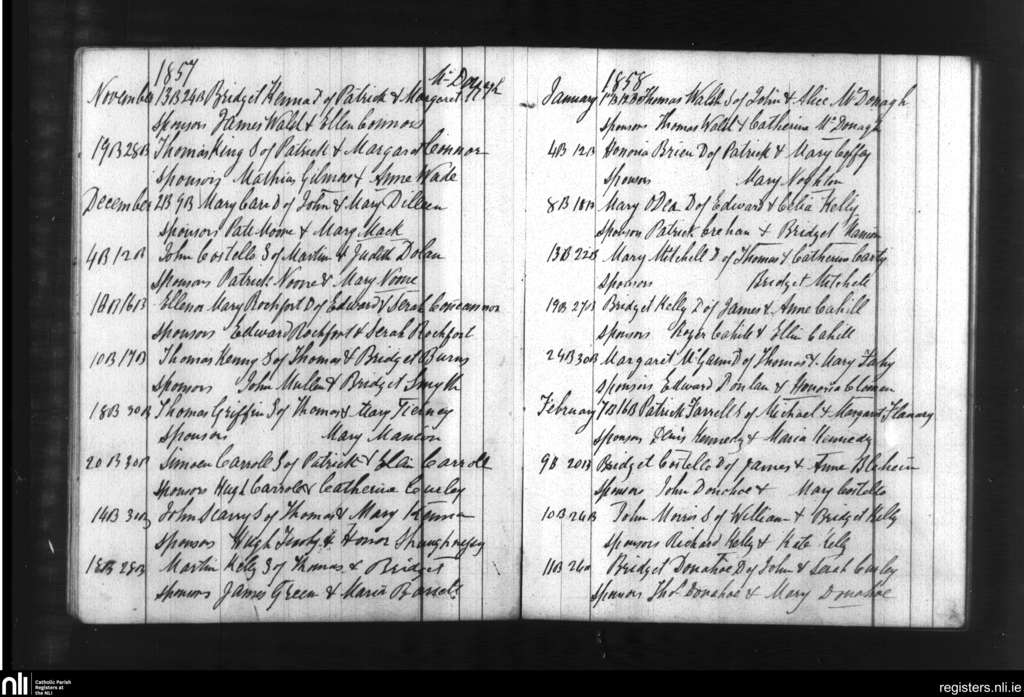 1857
November 13B 24B Bridget Kenna D of Patrick & Margaret McDonagh
Sponsors James Wald & Ellen Connors
19B 28B Thomas King S of Patrick & Margaret Connor
Sponsors Mathias Gilmore & Anne Wade
December 2B 9B Mary Carr D of John & Mary Dilleen
Sponsors Pat Moore & Mary Mack
4B 12B John Costello S of Martin & Judith Dolan
Sponsors Patrick Noone & Mary Noone
Ellenor Mary Rochfort D of Edward & Serah Concannon
Sponsors Edward Rochfort & Serah Rochfort
10B 17B Thomas Kenny S of Thomas & Bridget Burns
Sponsors John Mullen & Bridget Smyth
18B 30B Thomas Griffin S of Thomas & Mary Tierney
Sponsors Mary Manion
20B 30B Simeon Carroll S of Patrick & Carroll
Sponsors Hugh Carroll & Catherine Curley
14B John Scarry S of Thomas & Mary Kenna
Sponsors Hugh & Honor Shaughnessy
Martin Kelly S of Thomas & Bridget
Sponsors James Green & Maria
1858
January 12B Thomas Wald S of John & Alice McDonagh
Sponsors Thomas Wald & Catherine McDonagh
4B 12B Honoria Brien D of Patrick & Mary Coffey
Sponsors Mary Noghton
8B 18B Mary O Dea D of Edward & Celia Kelly
Sponsors Patrick Crehan & Bridget
13B 22B Mary Mitchell D of Thomas & Catherine Carty
Sponsors Bridget Mitchell
19B 27B Bridget Kelly D of James & Anne Cahill
Sponsors Roger Cahill & Ellen Cahill
24B 30B Margaret D of Thomas & Mary Fahy
Sponsors Edward Donlan & Honoria
February 7B 16B Patrick Farrell S of Michael & Margaret Flannery
Sponsors Denis Kennedy & Maria Kennedy
9B 20B Bridget Costello D of James & Anne Blehein
Sponsors John Donohoe & Mary Costello
10B 26B John Morris S of William & Bridget Kelly
Sponsors Richard Kelly & Kate Kelly
11B 26B Bridget Donahoe D of John & Sarah Curley
Sponsors Thos Donahoe & Mary Donahoe
nli
Catholic Parish
Registers at
the NLI
registers.nli.ie